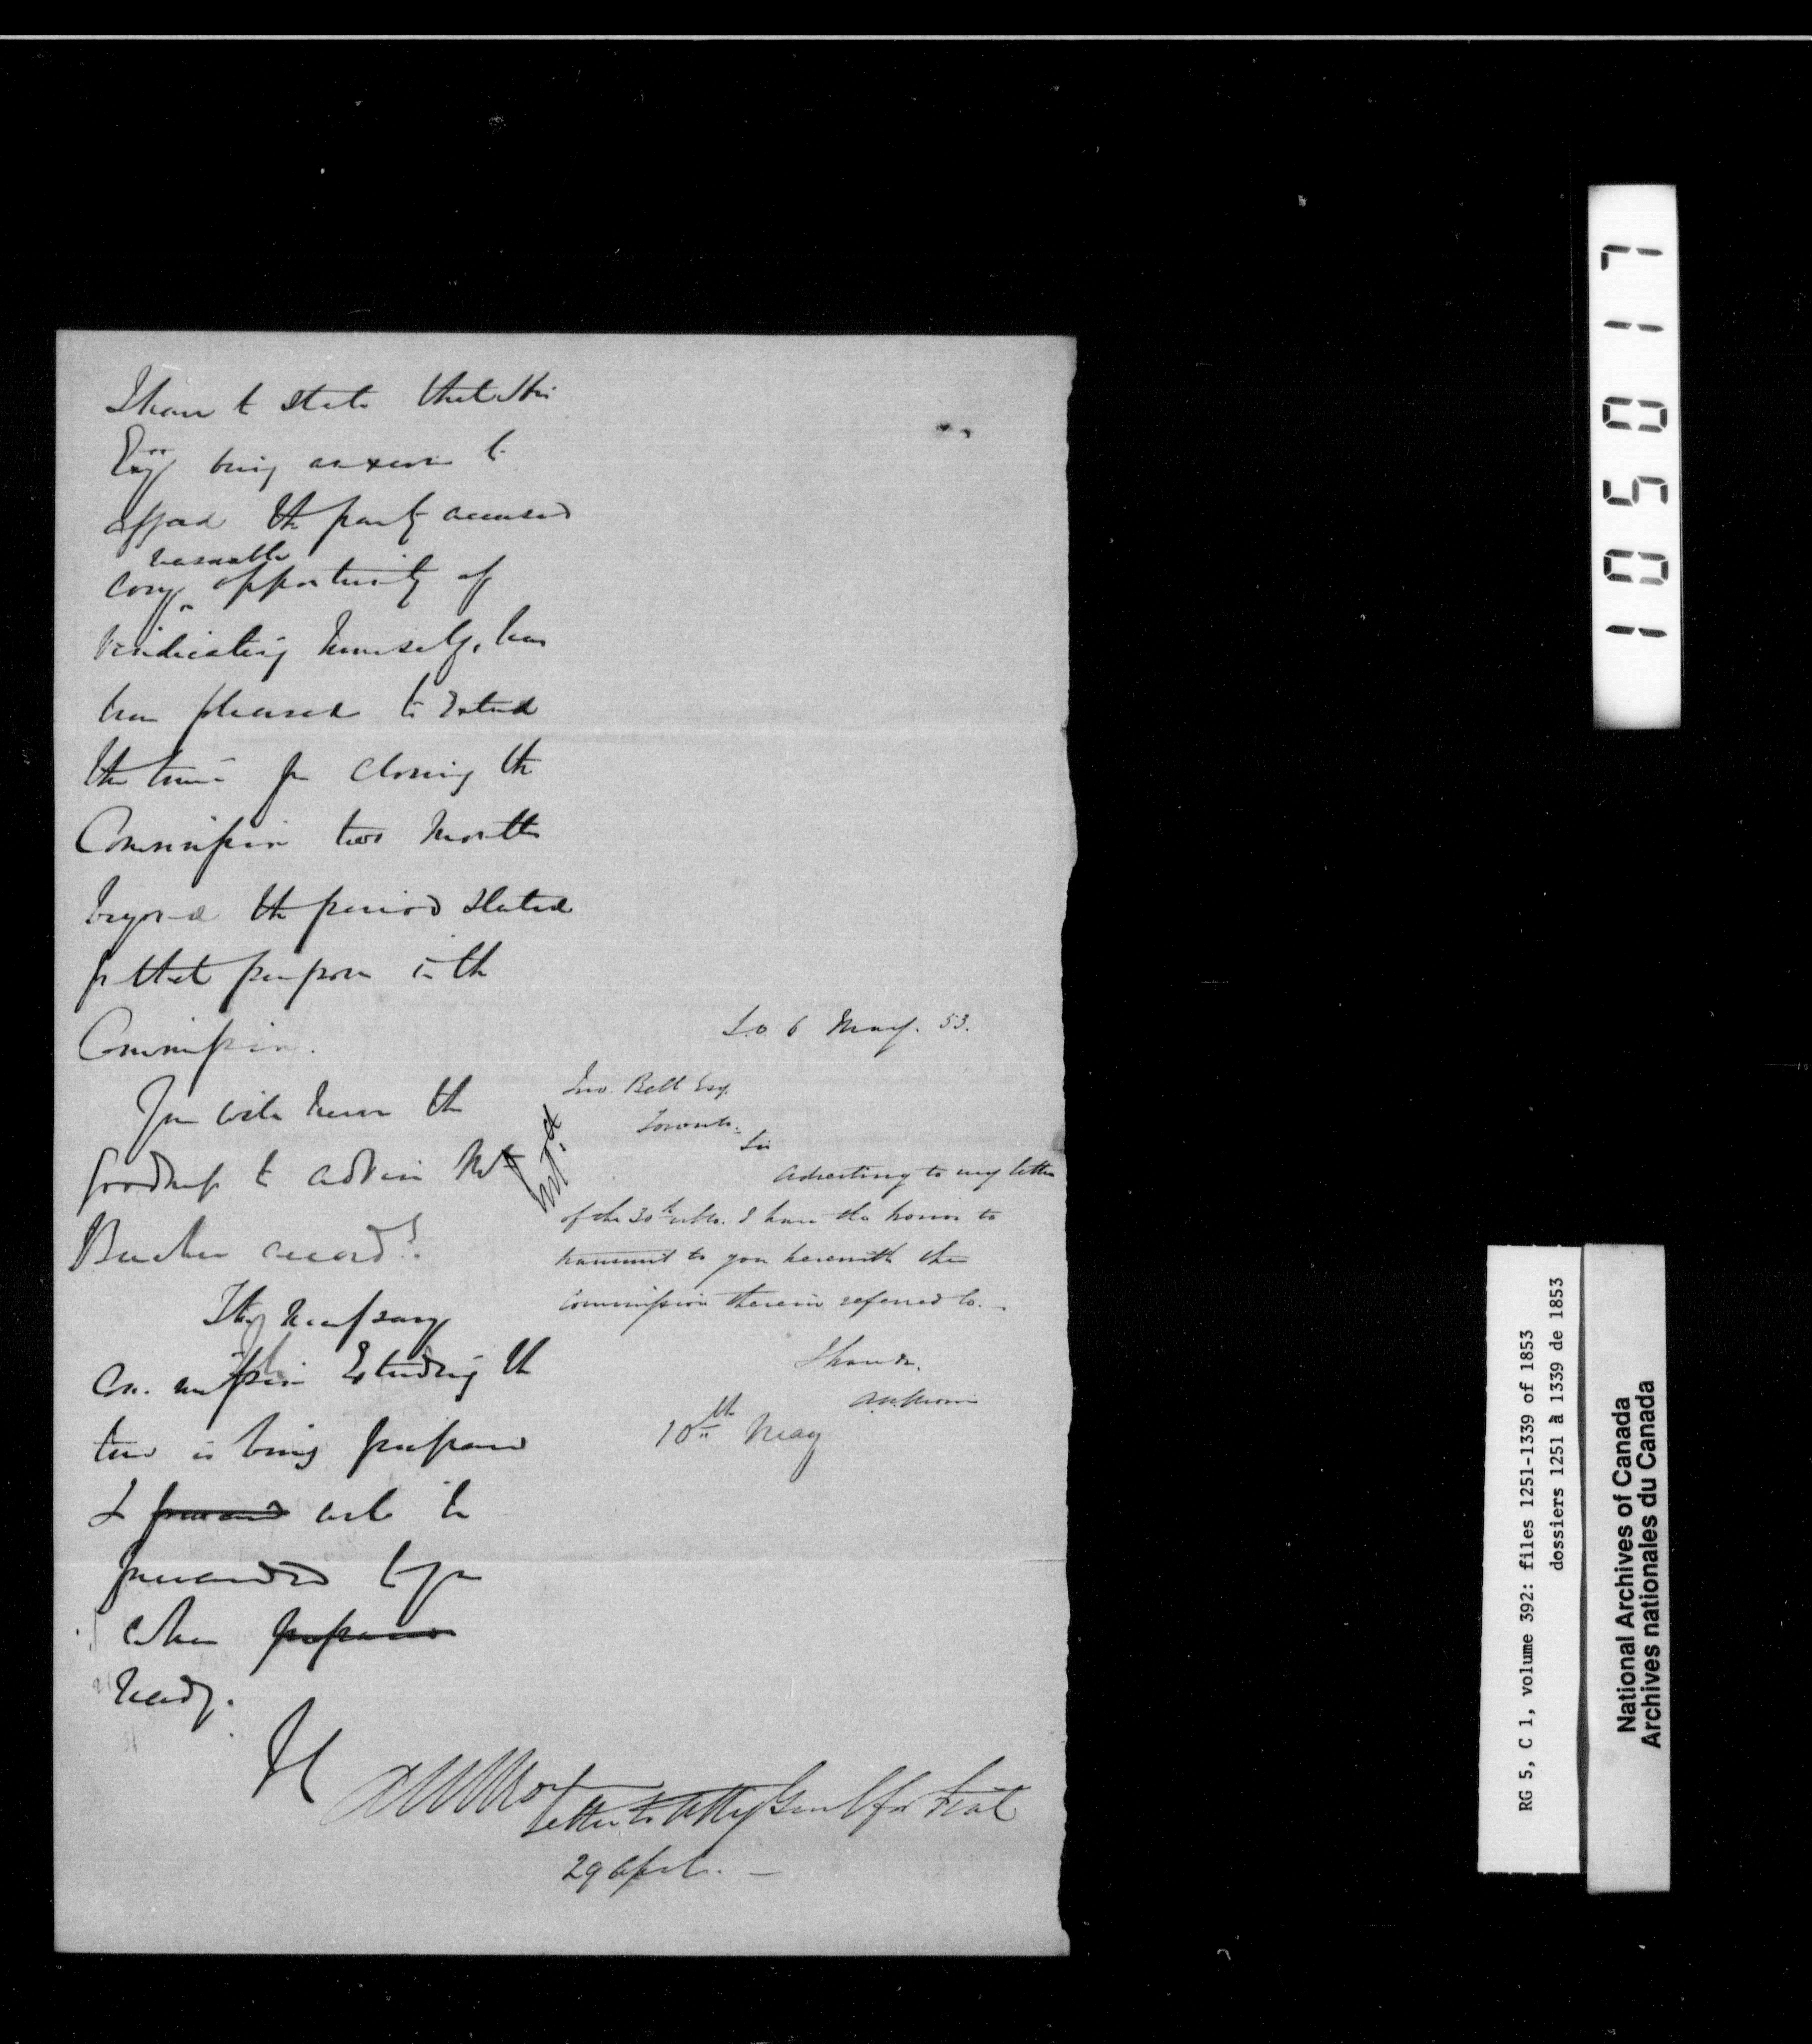 I have to state that His
Exy being anxious to
afford the party accused
reasonable
every opportunity of
vindicating himself, has
been pleased to extend
the time for closing the
Commission two months
beyond the period stated
for that purpose in the
Commission.
You will have the
goodness to advise Mr
Becher accordy.
The necessary
Commission Extending the
time is being prepared
& forward will be
forwarded to you
when prepared
ready.
S.O. 6 May. 53.
Jno. Bell Esq.
Toronto.
Sir
Adverting to my letter
of the 30th ulto. I have the honor to
transmit to you herewith the
Commission therein referred to.
I have &.
A.N. Morin
10th May
Letter to Atty Genl for fiat
29 April.
1050117
RG 5, C 1, volume 392: files 1251-1339 of 1853
dossiers 1251 à 1339 de 1853
National Archives of Canada
Archives nationales du Canada